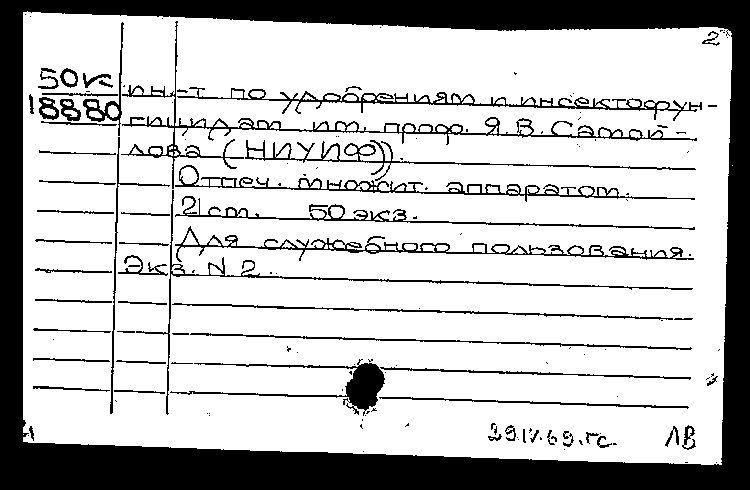 2
50К ин-т по удобрениям и инсектофун-
18880 гицидам им. проф. Я.В.Самой-
лова (НИУИФ).
Отпеч. множит. аппаратом.
21 ст. 50 экз.
Для служебного пользования.
Экз. N 2.
29.IV.69.гс ЛВ